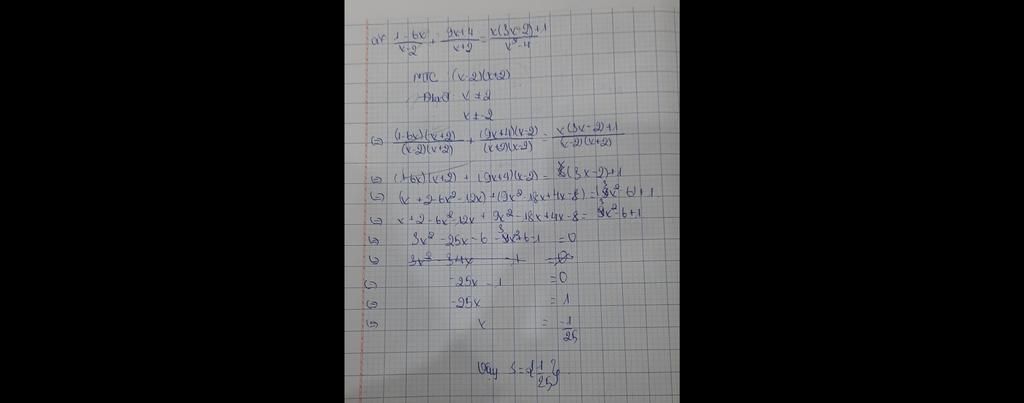 a) (1-6x)/(x-2) + (9x+4)/(x+2) = (x(3x-2)+1)/(x²-4)
MTC (x-2)(x+2)
x ≠ 2
x ≠ -2
(=) (1-6x)(x+2)/(x-2)(x+2) + (9x+4)(x-2)/(x+2)(x-2) = (x(3x-2)+1)/(x-2)(x+2)
(=) (1-6x)(x+2) + (9x+4)(x-2) = x(3x-2)+1
(=) (x+2-6x²-12x)+(9x²-18x+4x-8) = (3x²-6)+1
(=) x+2-6x²-12x+9x²-18x+4x-8 = 3x²-6+1
(=) 3x²-25x-6-3x²+6-1 = 0
(=)
(=) -25x-1 = 0
(=) -25x = 1
(=) x = -1/25
Vậy S={-1/25}